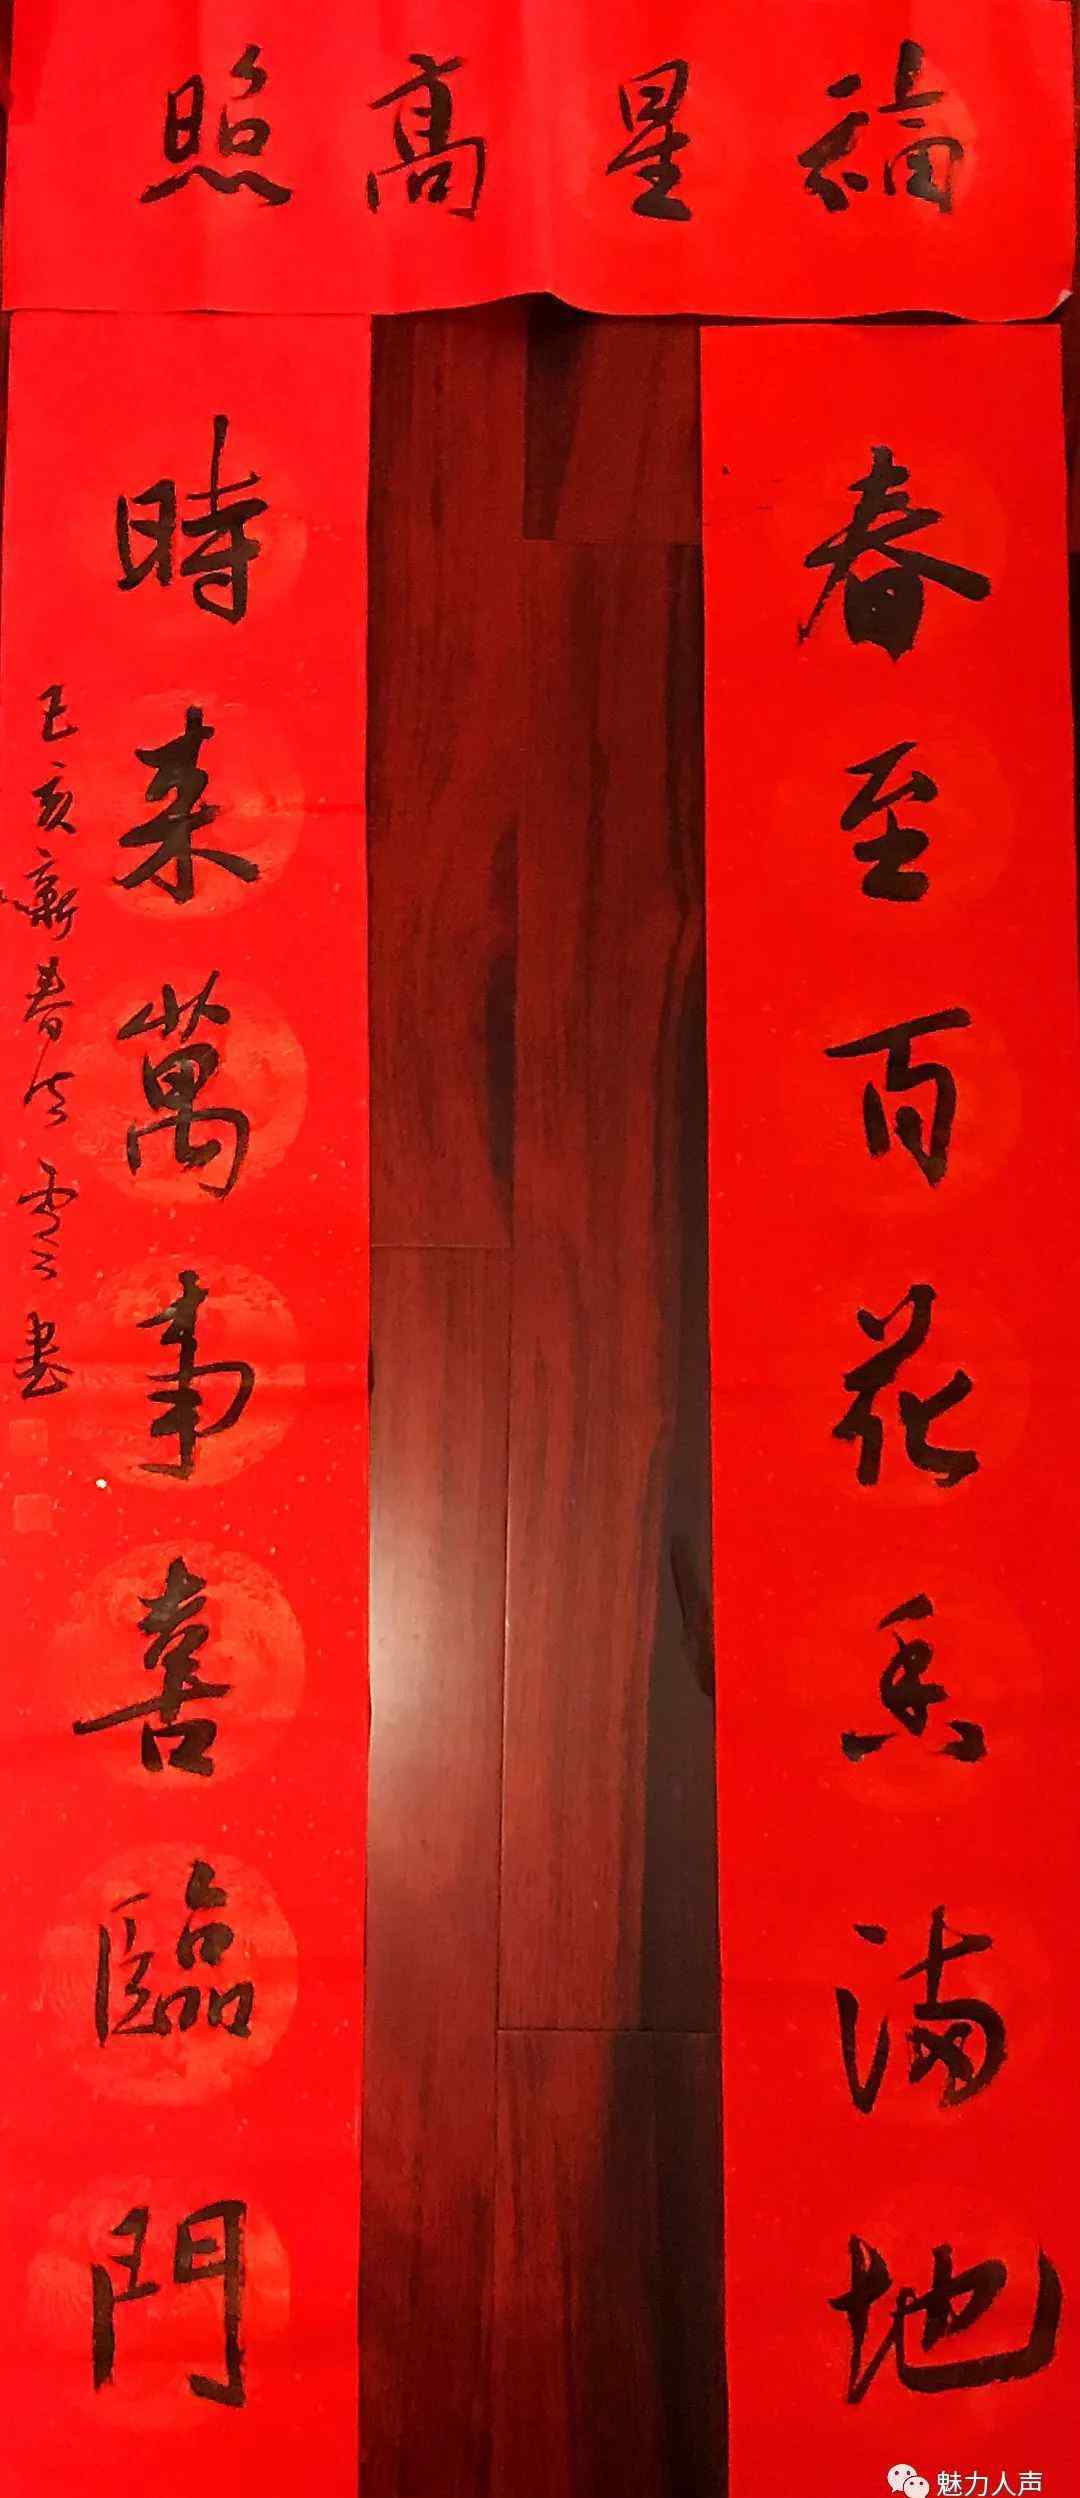 福星高照
春至百花香满地
時来萬事喜臨門
己亥新春
書
魅力人声